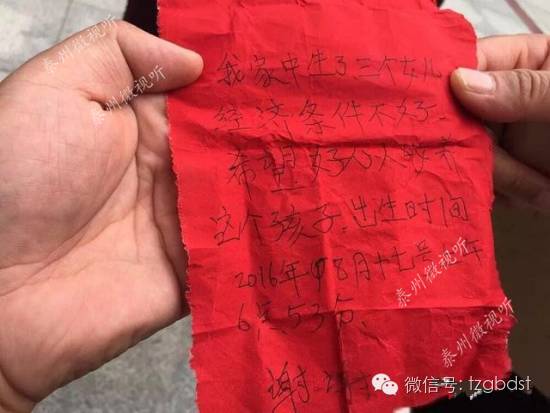 泰州微视听
我家中生了三个女儿
经济条件不好.
希望好心人收养
这个孩子.出生时间
2016年8月十七号 年
6点53分.
谢谢
泰州微视听
泰州微视听
微信号: tzgbdst